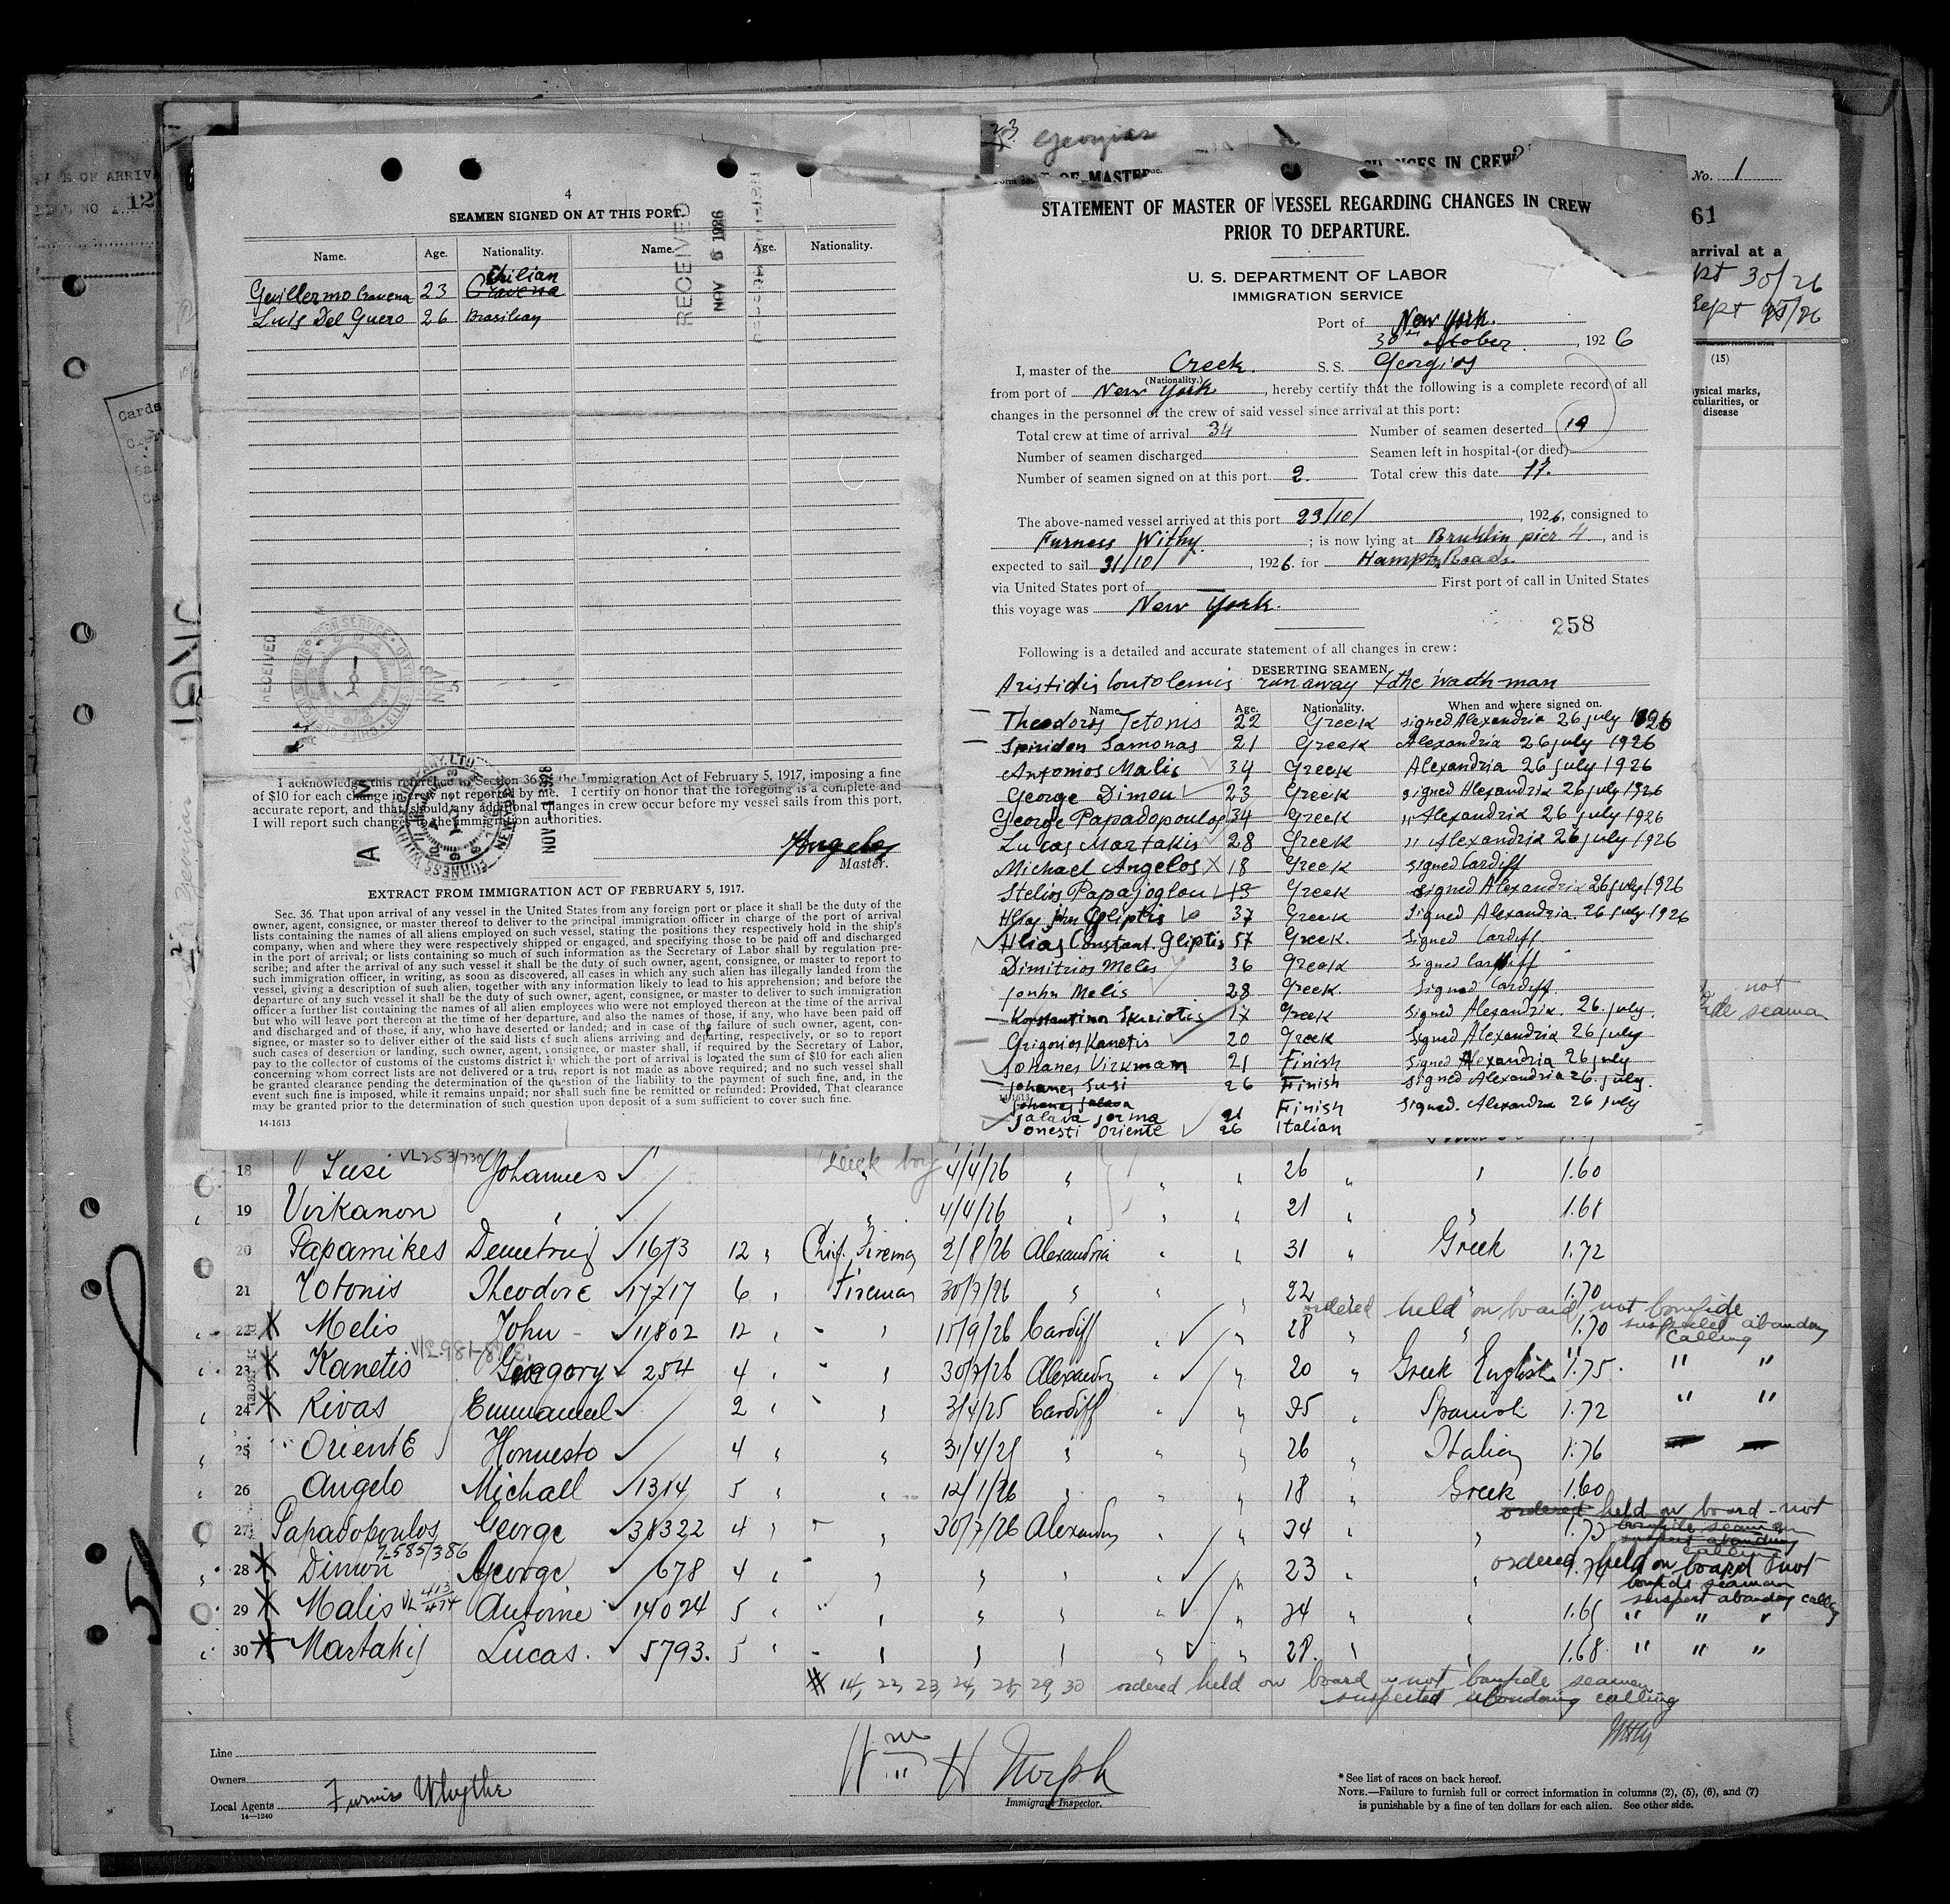 4
SEAMEN SIGNED ON AT THIS PORT.
Name. Age. Nationality. Name. Age. Nationality.
Chilian
Guillermo Cravena 23 Cravena
Luis Del Guero 26 Brasilian
RECEIVED
NOV 5 1926
I acknowledge this reference to Section 36 of the Immigration Act of February 5, 1917, imposing a fine
of $10 for each change in crew not reported by me. I certify on honor that the foregoing is a complete and
accurate report, and that should any additional changes in crew occur before my vessel sails from this port,
I will report such changes to the immigration authorities.
Angelos
Master.
EXTRACT FROM IMMIGRATION ACT OF FEBRUARY 5, 1917.
Sec. 36. That upon arrival of any vessel in the United States from any foreign port or place it shall be the duty of the
owner, agent, consignee, or master thereof to deliver to the principal immigration officer in charge of the port of arrival
lists containing the names of all aliens employed on such vessel, stating the positions they respectively hold in the ship's
company, when and where they were respectively shipped or engaged, and specifying those to be paid off and discharged
in the port of arrival; or lists containing so much of such information as the Secretary of Labor shall by regulation pre-
scribe; and after the arrival of any such vessel it shall be the duty of such owner, agent, consignee, or master to report to
such immigration officer, in writing, as soon as discovered, all cases in which any such alien has illegally landed from the
vessel, giving a description of such alien, together with any information likely to lead to his apprehension; and before the
departure of any such vessel it shall be the duty of such owner, agent, consignee, or master to deliver to such immigration
officer a further list containing the names of all alien employees who were not employed thereon at the time of the arrival
but who will leave port thereon at the time of her departure, and also the names of those, if any, who have been paid off
and discharged and of those, if any, who have deserted or landed; and in case of the failure of such owner, agent, con-
signee, or master so to deliver either of the said lists of such aliens arriving and departing, respectively, or so to report
such cases of desertion or landing, such owner, agent, consignee, or master shall, if required by the Secretary of Labor,
pay to the collector of customs of the customs district in which the port of arrival is located the sum of $10 for each alien
concerning whom correct lists are not delivered or a true report is not made as above required; and no such vessel shall
be granted clearance pending the determination of the question of the liability to the payment of such fine, and, in the
event such fine is imposed, while it remains unpaid; nor shall such fine be remitted or refunded: Provided, That clearance
may be granted prior to the determination of such question upon deposit of a sum sufficient to cover such fine.
14-1613
Georgios
STATEMENT OF MASTER OF VESSEL REGARDING CHANGES IN CREW
PRIOR TO DEPARTURE.
U. S. DEPARTMENT OF LABOR
IMMIGRATION SERVICE
Port of New York.
30th October, 1926
I, master of the Greek S. S. Georgios
(Nationality.)
from port of New York, hereby certify that the following is a complete record of all
changes in the personnel of the crew of said vessel since arrival at this port:
Total crew at time of arrival 34 Number of seamen deserted 19
Number of seamen discharged Seamen left in hospital (or died)
Number of seamen signed on at this port 2. Total crew this date 17.
The above-named vessel arrived at this port 23/10/, 1926, consigned to
Furness Withy; is now lying at Bruklin pier 4, and is
expected to sail 31/10/, 1926. for Hampton Roads.
via United States port of First port of call in United States
this voyage was New York.
258
Following is a detailed and accurate statement of all changes in crew:
DESERTING SEAMEN
Name. Age. Nationality. When and where signed on.
Theodoros Tetonis 22 Greek signed Alexandria 26 july 1926
Spiridon Samonas 21 Greek Alexandria 26 july 1926
Antonios Malis 34 Greek Alexandria 26 july 1926
George Dimou 23 Greek signed Alexandria 26 july 1926
George Papadopoulos 34 Greek " Alexandria 26 july 1926
Lucas Martakis 28 Greek " Alexandria 26 july 1926
Michael Angelos X 18 Greek signed Cardiff
Stelios Papajoglou Greek signed Alexandria 26 july 1926
Hlias john Gliptis 37 Greek Signed Alexandria. 26 july 1926
Hlias Constant. Gliptis 57 Greek. Signed Cardiff
Dimitrios Meles 36 Greek Signed Cardiff
Jonhn Melis 28 Greek. Signed Cardiff
Konstantinos Greek Signed Alexandria. 26. july.
Grigorios Kanetis 20 Greek Signed Alexandria 26 july
Johanes Virkman 21 Finish Signed Alexandria 26 july
Johanes Susi 26 Finish Signed Alexandria 26. july.
Johanes Jalava
Jalava Jorma 21 Finish Signed. Alexandria 26 july
Jonesti Oriente 26 Italian
No. 1
61
arrival at a
Sept 30/26
(15)
physical marks,
peculiarities, or
disease
18 Susi Johannes 4/4/26 26 1.60
19 Virkanon 4/4/26 21 1.61
20 Papamikes Demetrius 1673 12 Chif. Fireman 2/8/26 Alexandria 31 Greek 1.72
21 Totonis Theodore 17717 6 Fireman 30/7/26 22 1.70
ordered held on board not bonfide
22 X Melis John 11802 12 15/9/26 Cardiff 28 1.70 suspected abandong
calling
23 X Kanetis Gregory 254 4 30/7/26 Alexandria 20 Greek English 1.75. " "
24 X Rivas Emmanuel 2 3/4/25 Cardiff 35 Spanish 1.72 " "
25 Oriente Honnesto 4 31/4/25 26 Italian 1.76
26 Angelo Michall 1314 5 12/1/26 18 Greek 1.60
ordered held on board - not
27 Papadopoulos George 38322 4 30/7/26 Alexandria 34 1.73
28 X Dimon George 678 4 23 ordered held on board not
bonfide seaman
suspect abandong calling
29 X Malis Antoine 14024 5 34 1.65 " " "
30 X Martakis Lucas. 5793. 5 28. 1.68 " " "
X 14, 22, 23, 24, 28, 29, 30 ordered held on board as not bonfide seamen
suspected abandoning calling
Line
Owners
Local Agents Furness Whythe
14—1240
Immigrant Inspector.
* See list of races on back hereof.
NOTE.—Failure to furnish full or correct information in columns (2), (5), (6), and (7)
is punishable by a fine of ten dollars for each alien. See other side.